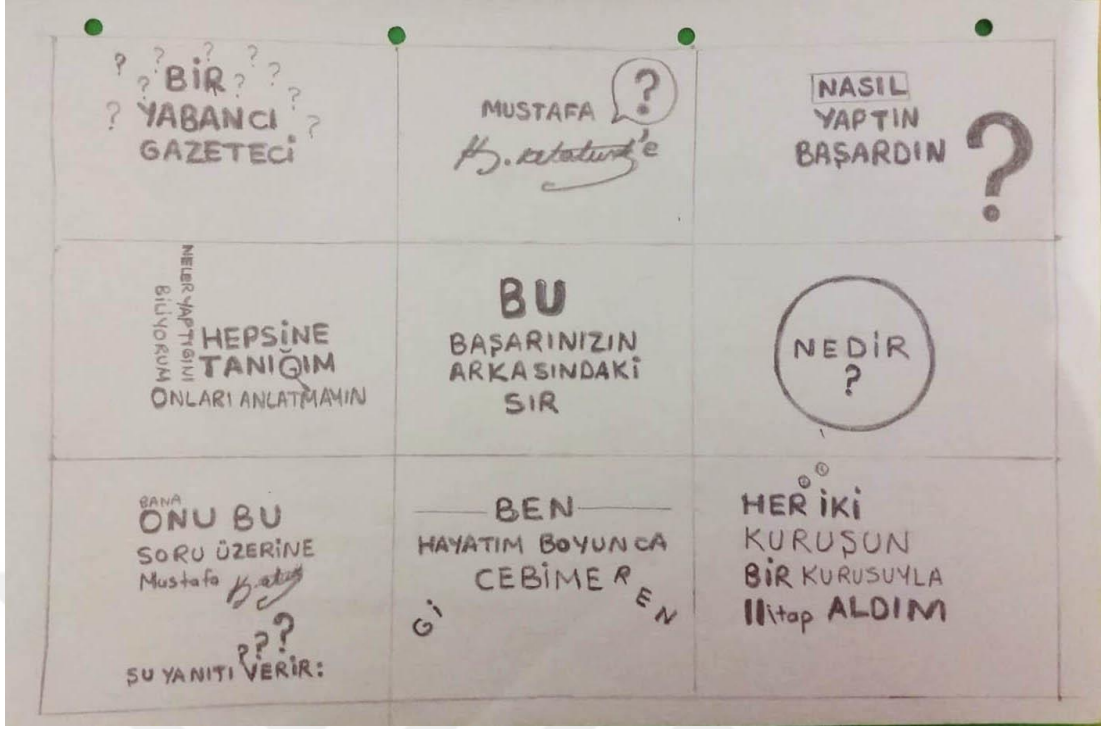 ? ? ? ? ?
? BİR ? ?
? YABANCI ? ?
GAZETECİ
MUSTAFA ?
K. Atatürk'e
NASIL
YAPTIN
BAŞARDIN ?
NELER YAPTIĞINI
BİLİYORUM
HEPSİNE
TANIĞIM
ONLARI ANLATMAYIN
BU
BAŞARINIZIN
ARKASINDAKİ
SIR
NEDİR
?
BANA
ONU BU
SORU ÜZERİNE
Mustafa
???
ŞU YANITI VERİR:
BEN
HAYATIM BOYUNCA
CEBİME
GİREN
HER İKİ
KURUŞUN
BİR KURUSUYLA
kitap ALDIM